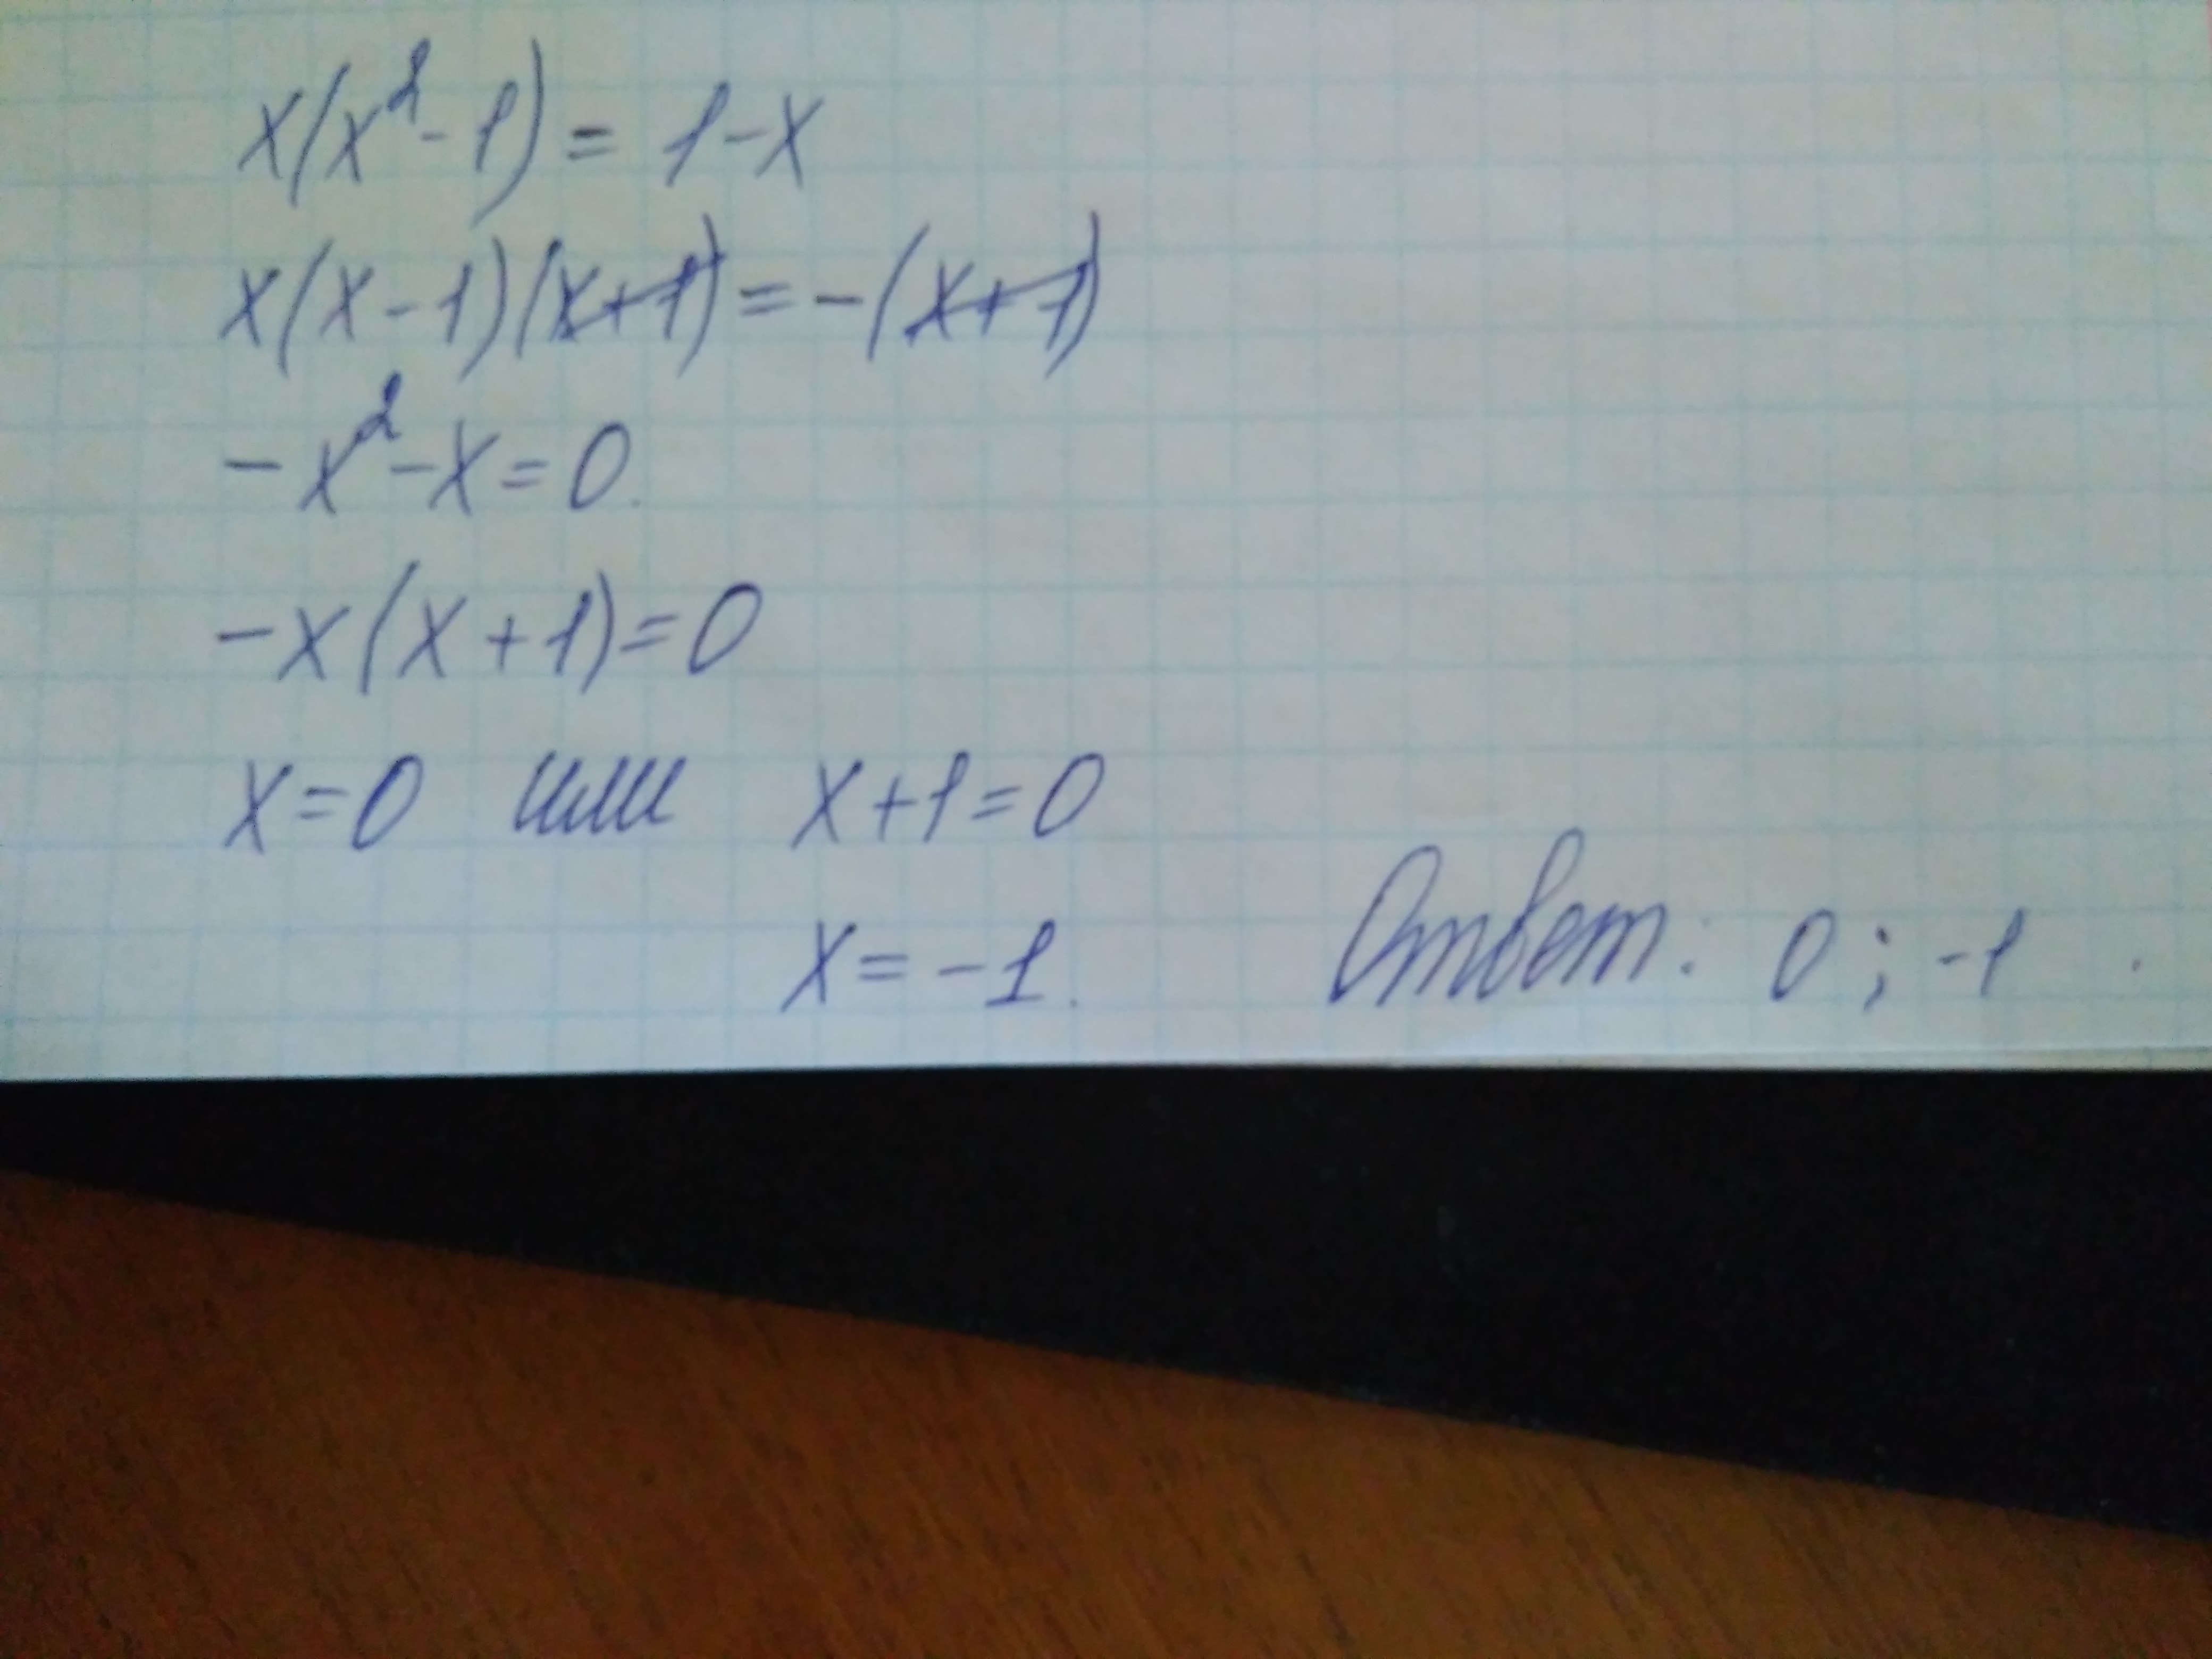 x(x²-1)=1-x
x(x-1)(x+1)=-(x+1)
-x²-x=0.
-x(x+1)=0
x=0 или x+1=0
x=-1. Ответ: 0; -1.